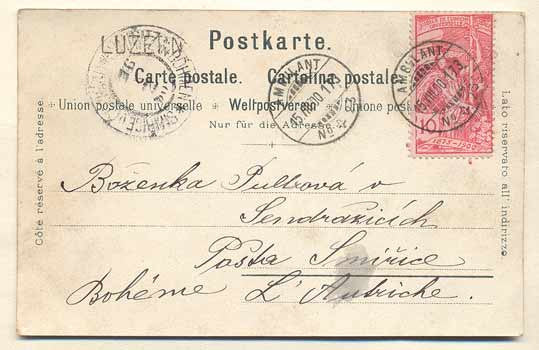 LUZERN
Postkarte.
Carte postale. Cartolina postale.
Union postale universelle ✦ Weltpostverein ✦ Unione postale
Nur für die Adresse
Côte réservé à l'adresse.
Lato riservato all' indirizzo.
AMBULANT
AMBULANT
10
1875-1900
Boženka Pultrová v
Sendražicích
Pošta Smiřice
Bohéme L'Autriche.